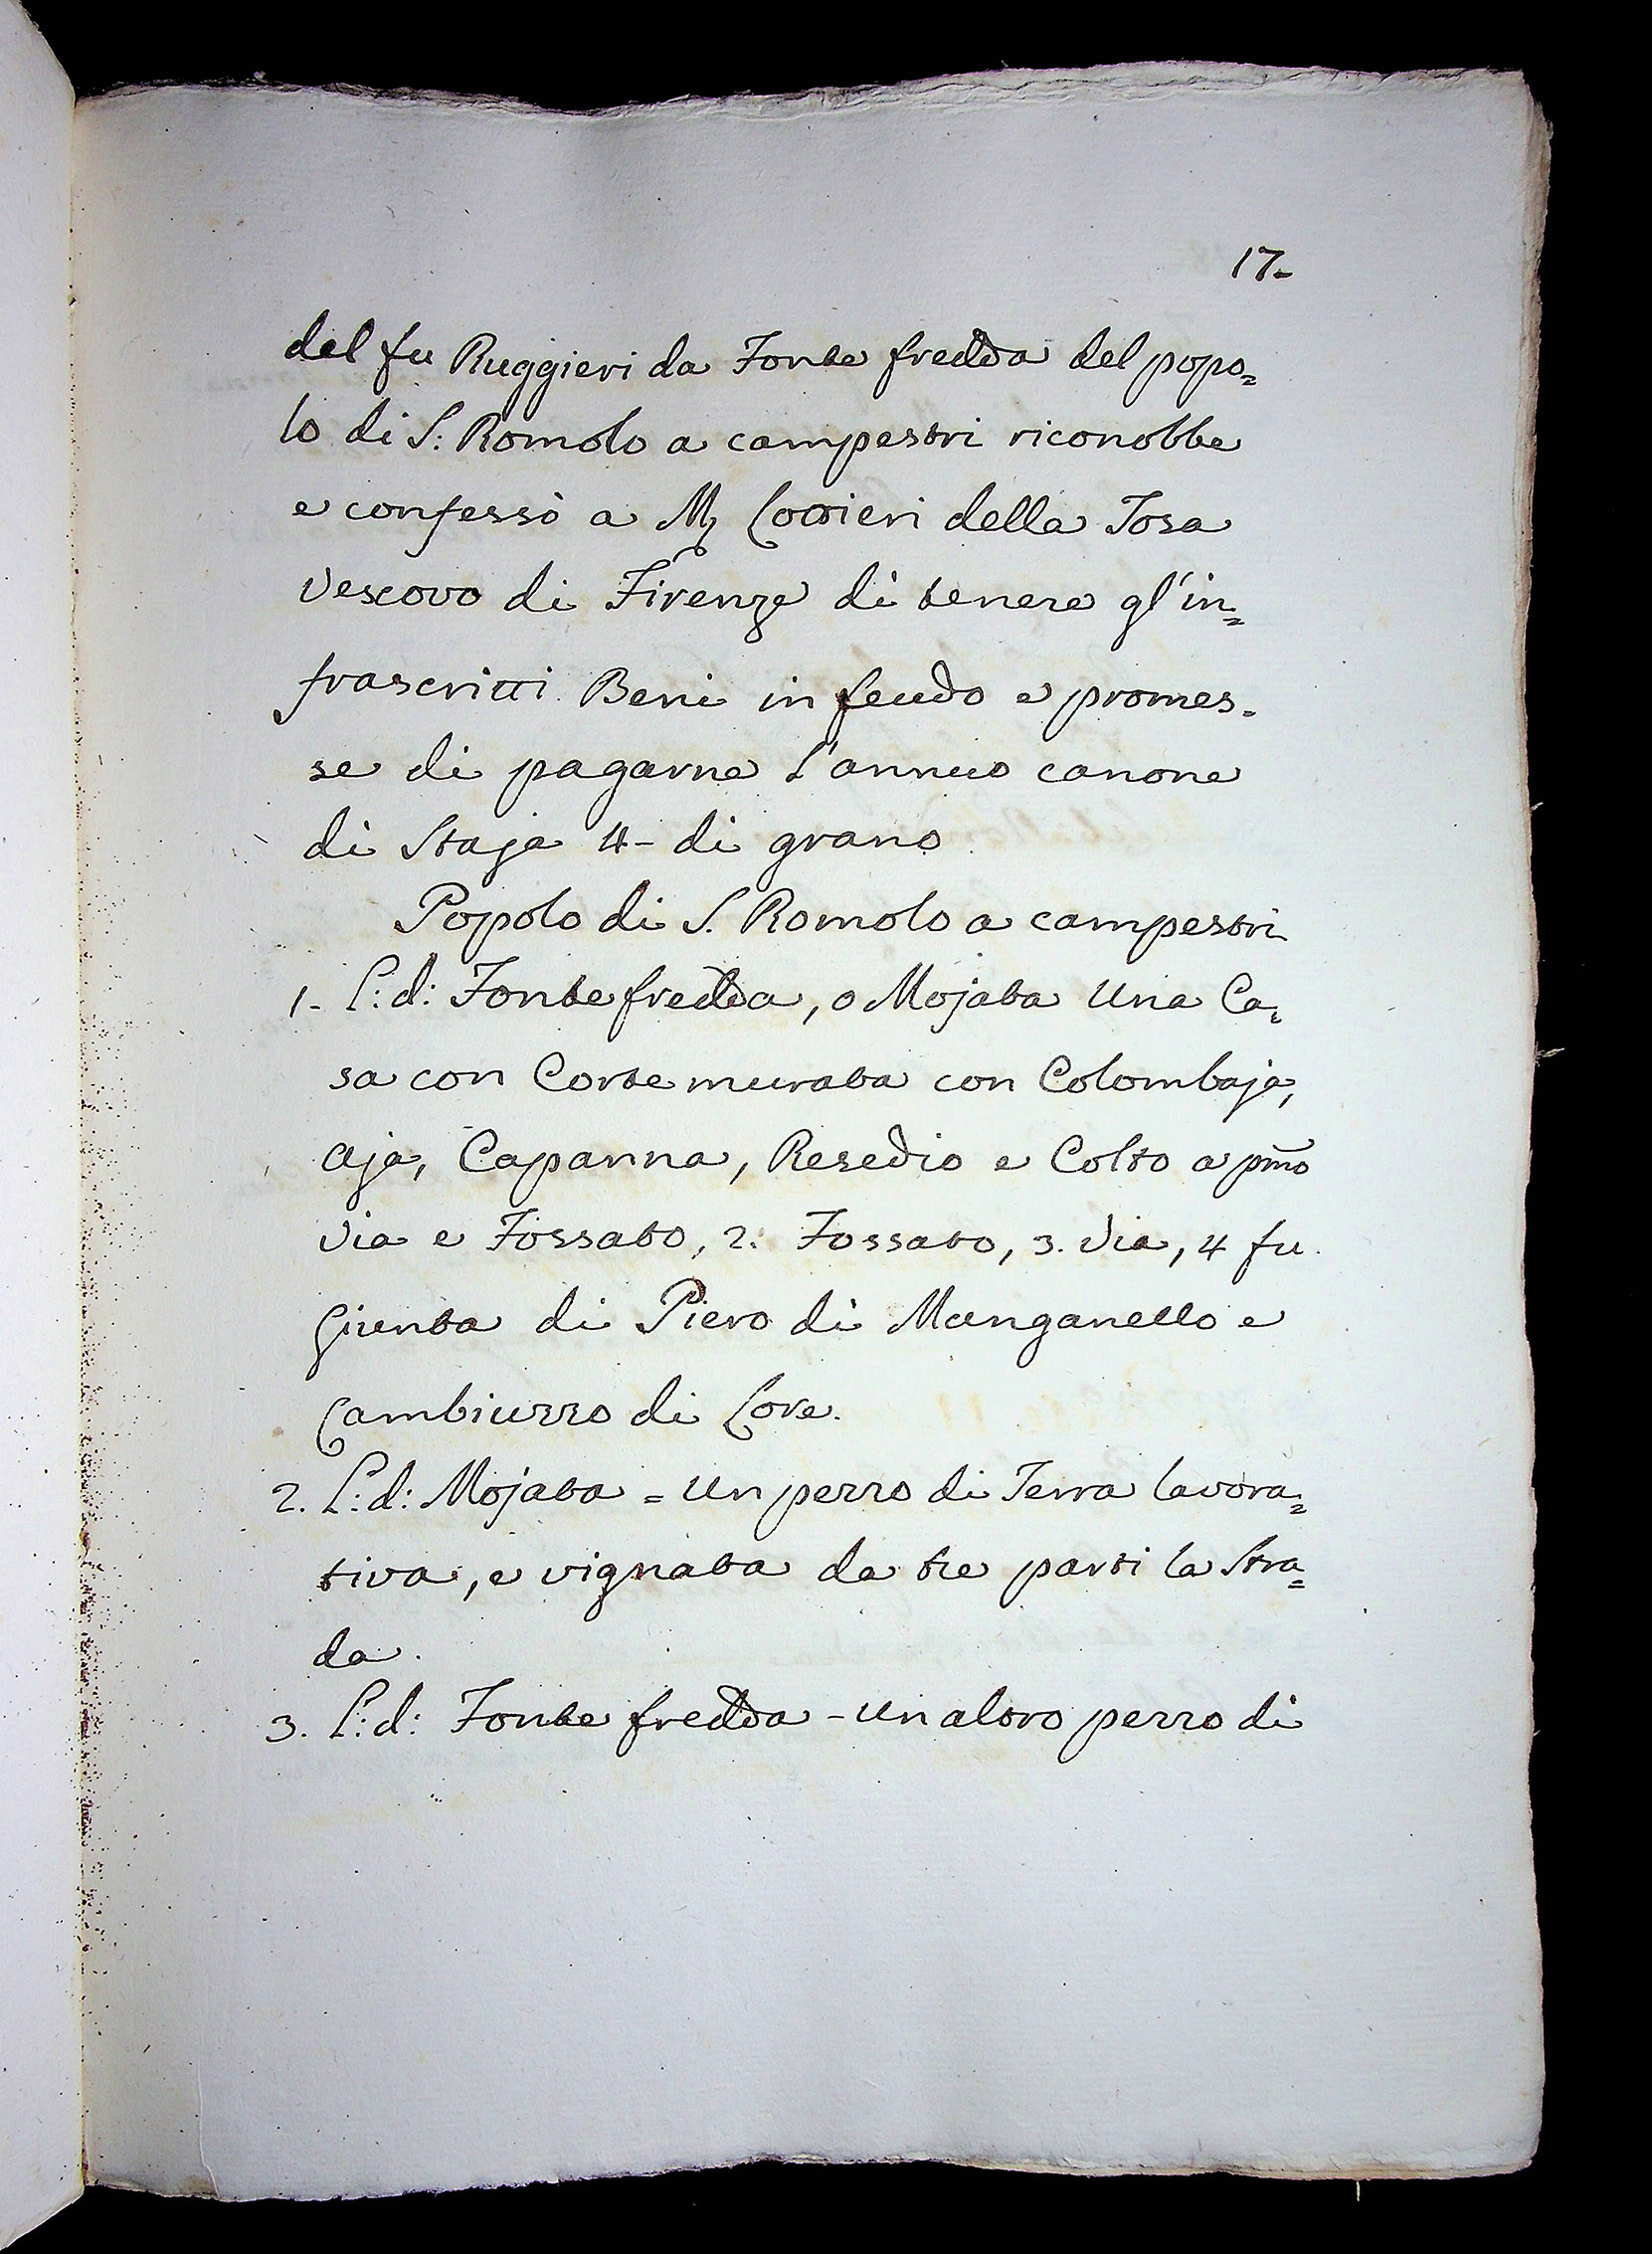 17.
del fu Ruggieri da Fonte fredda del popo=
lo di S: Romolo a campestri riconobbe
e confessò a M Lottieri della Tosa
Vescovo di Firenze di tenere gl'in=
frascritti Beni in feudo e promes=
se di pagarne l'annuo canone
di Staja 4- di grano
Popolo di S. Romolo a campestri
1- L: d: Fontefredda, o Mojata Una Ca=
sa con Corte murata con Colombaja,
Aja, Capanna, Resedio e Colto a pmo
Via e Fossato, 2. Fossato, 3. Via, 4 fu
Giunta di Piero di Manganello e
Cambiuzzo di Lore.
2. L: d: Mojata = Un pezzo di Terra lavora=
tiva, e vignata da tre parti la Stra=
da.
3. L: d: Fonte fredda - Un altro pezzo di